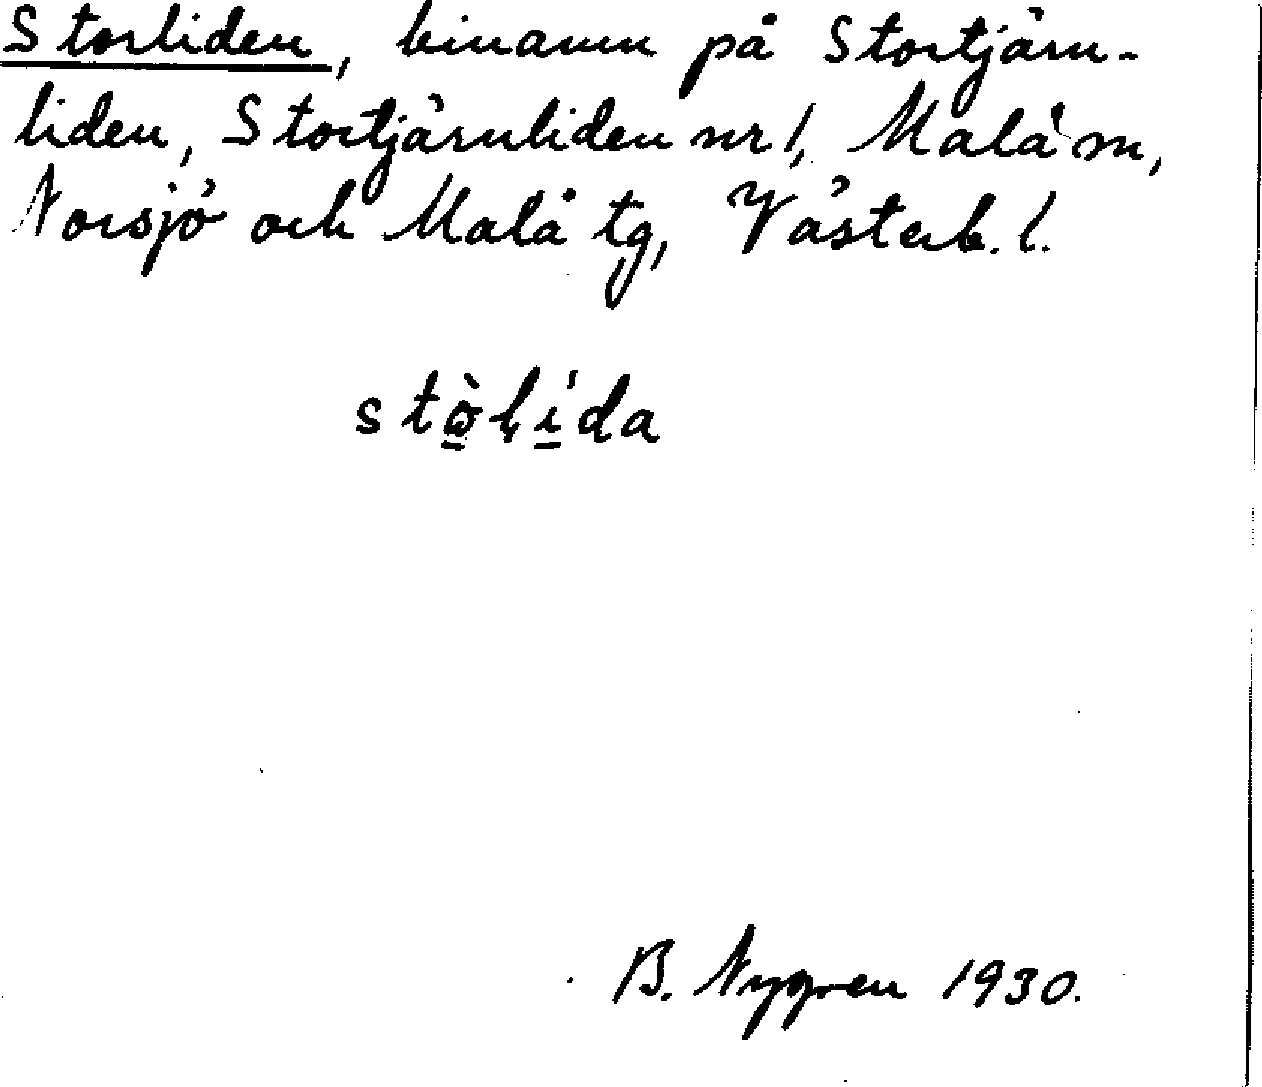 Storliden, binamn på Stortjärn-
liden, Stortjärnliden nr 1, Malå sn,
Norsjö och Malå tg, Västerb. l.
stò̱l̨í̱da
B. Nygren 1930.